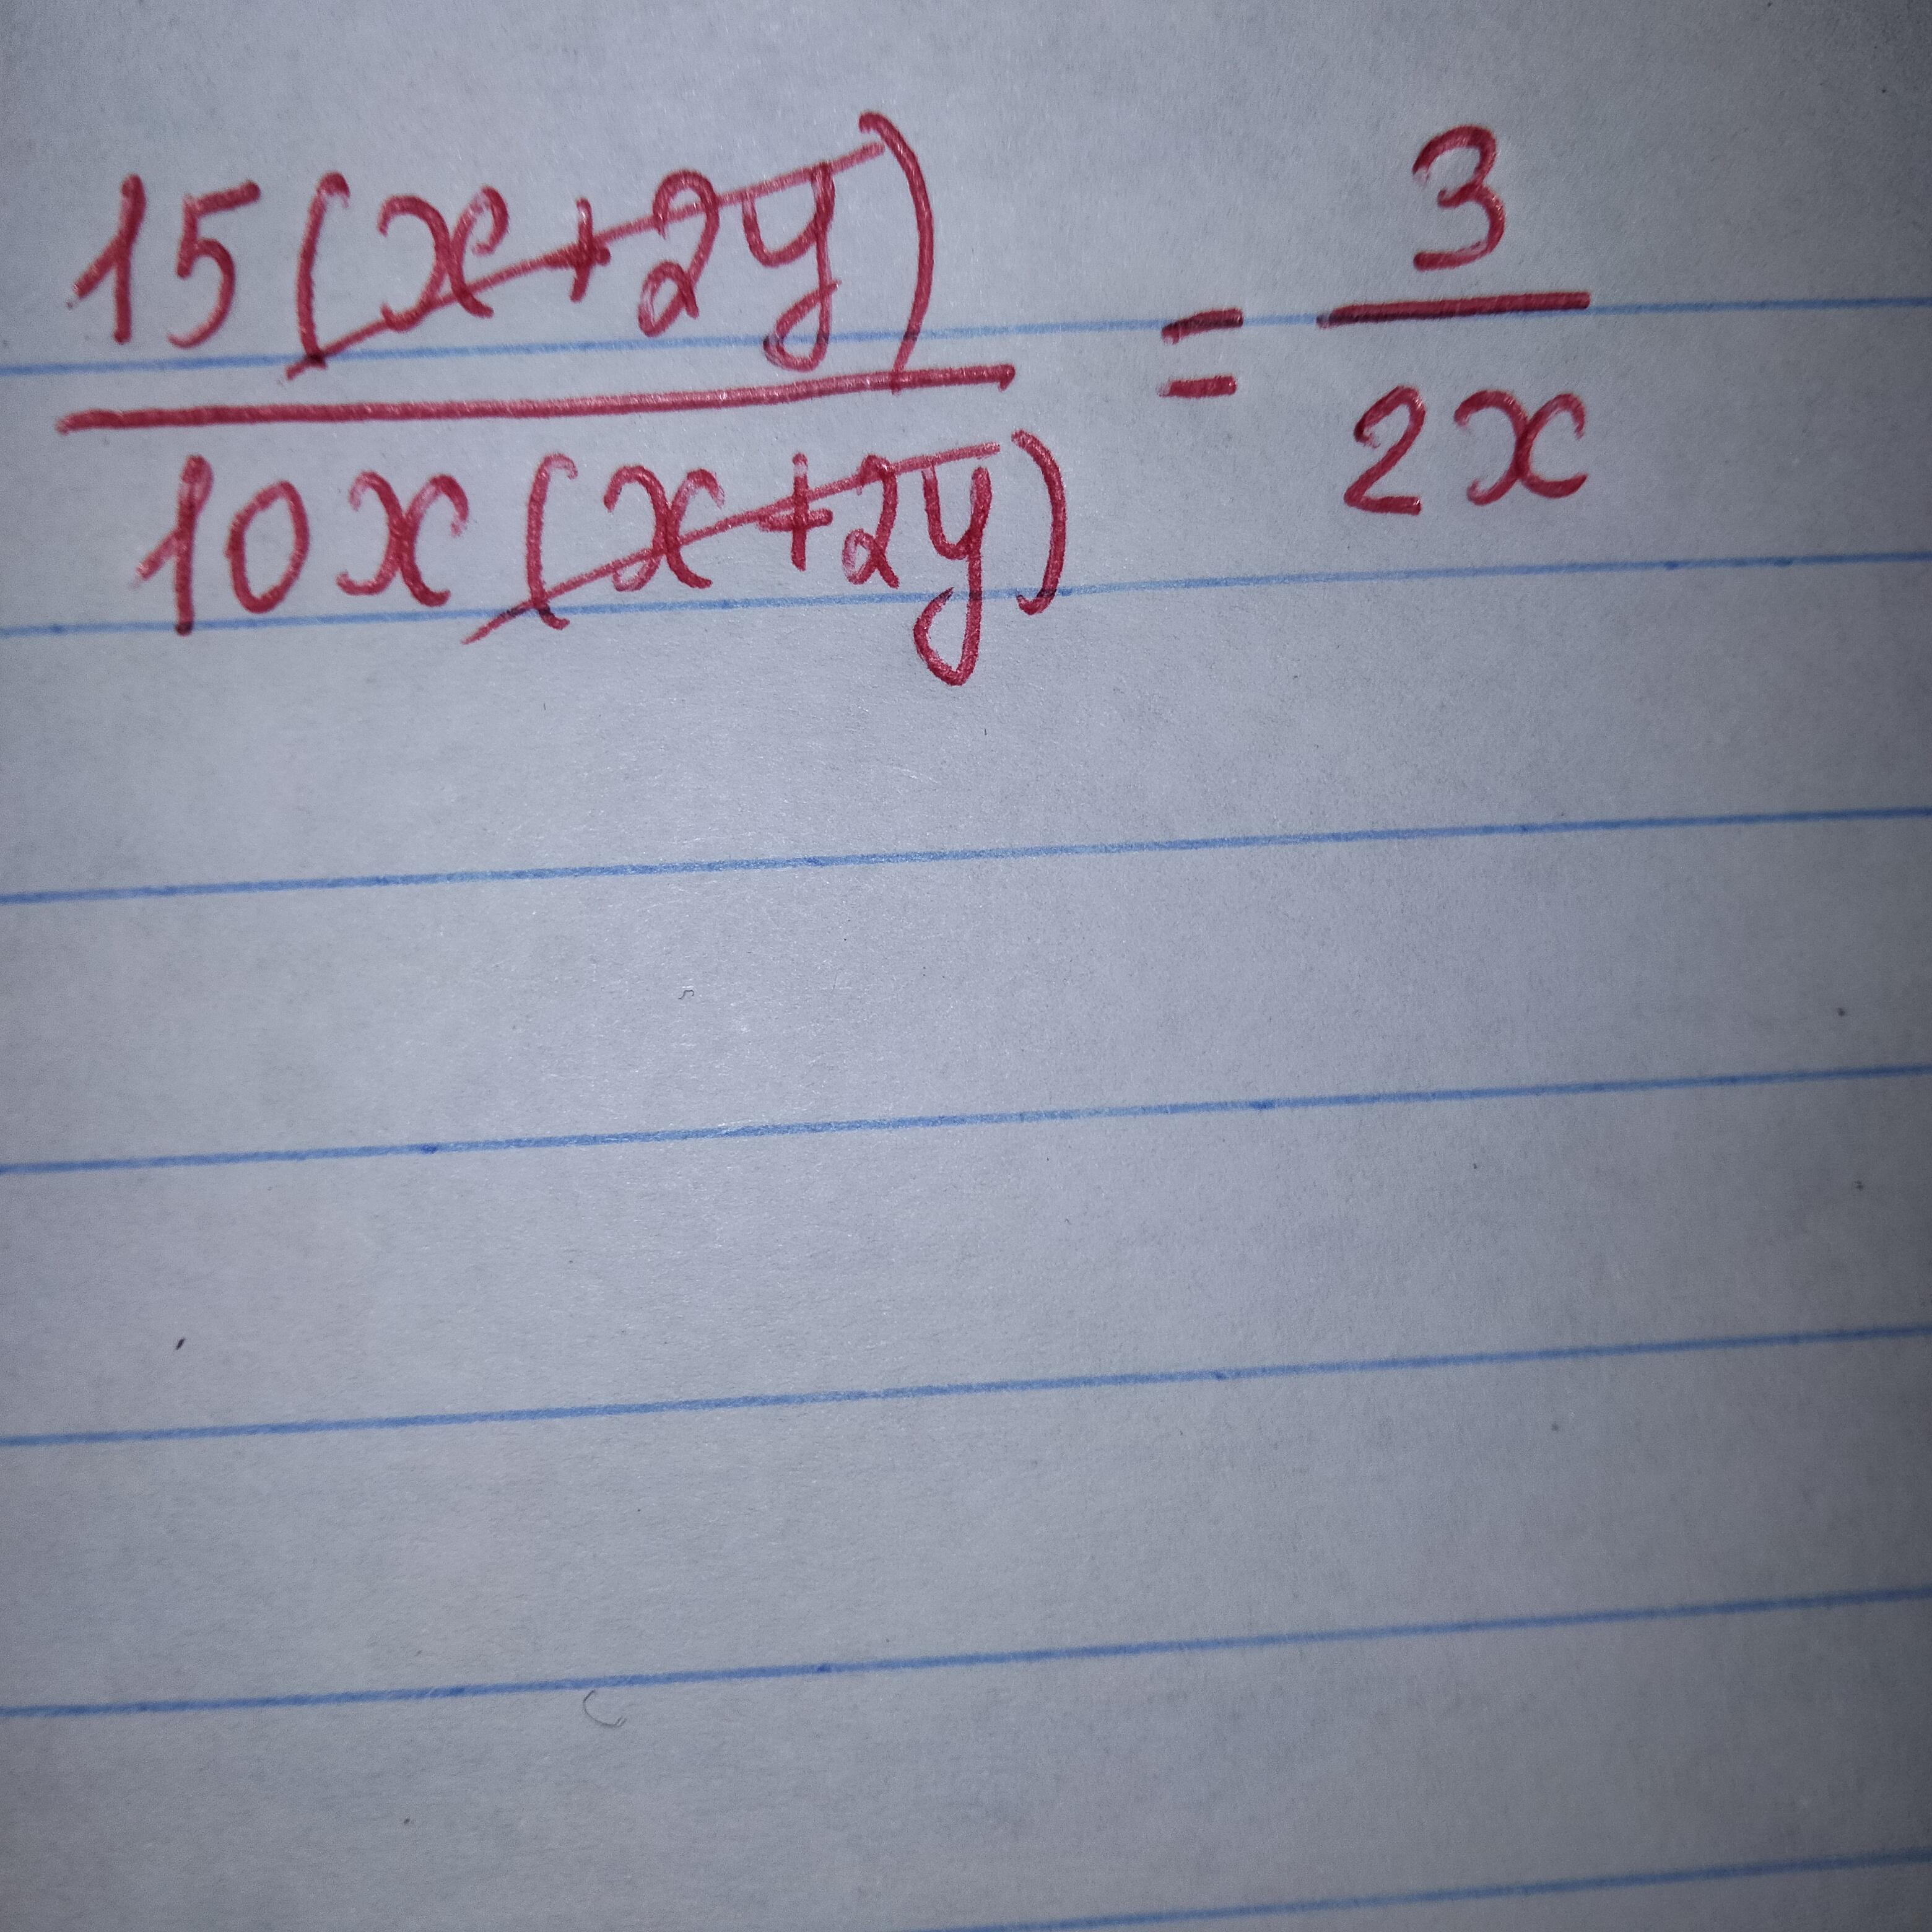 15(x+2y) / 10x(x+2y) = 3 / 2x